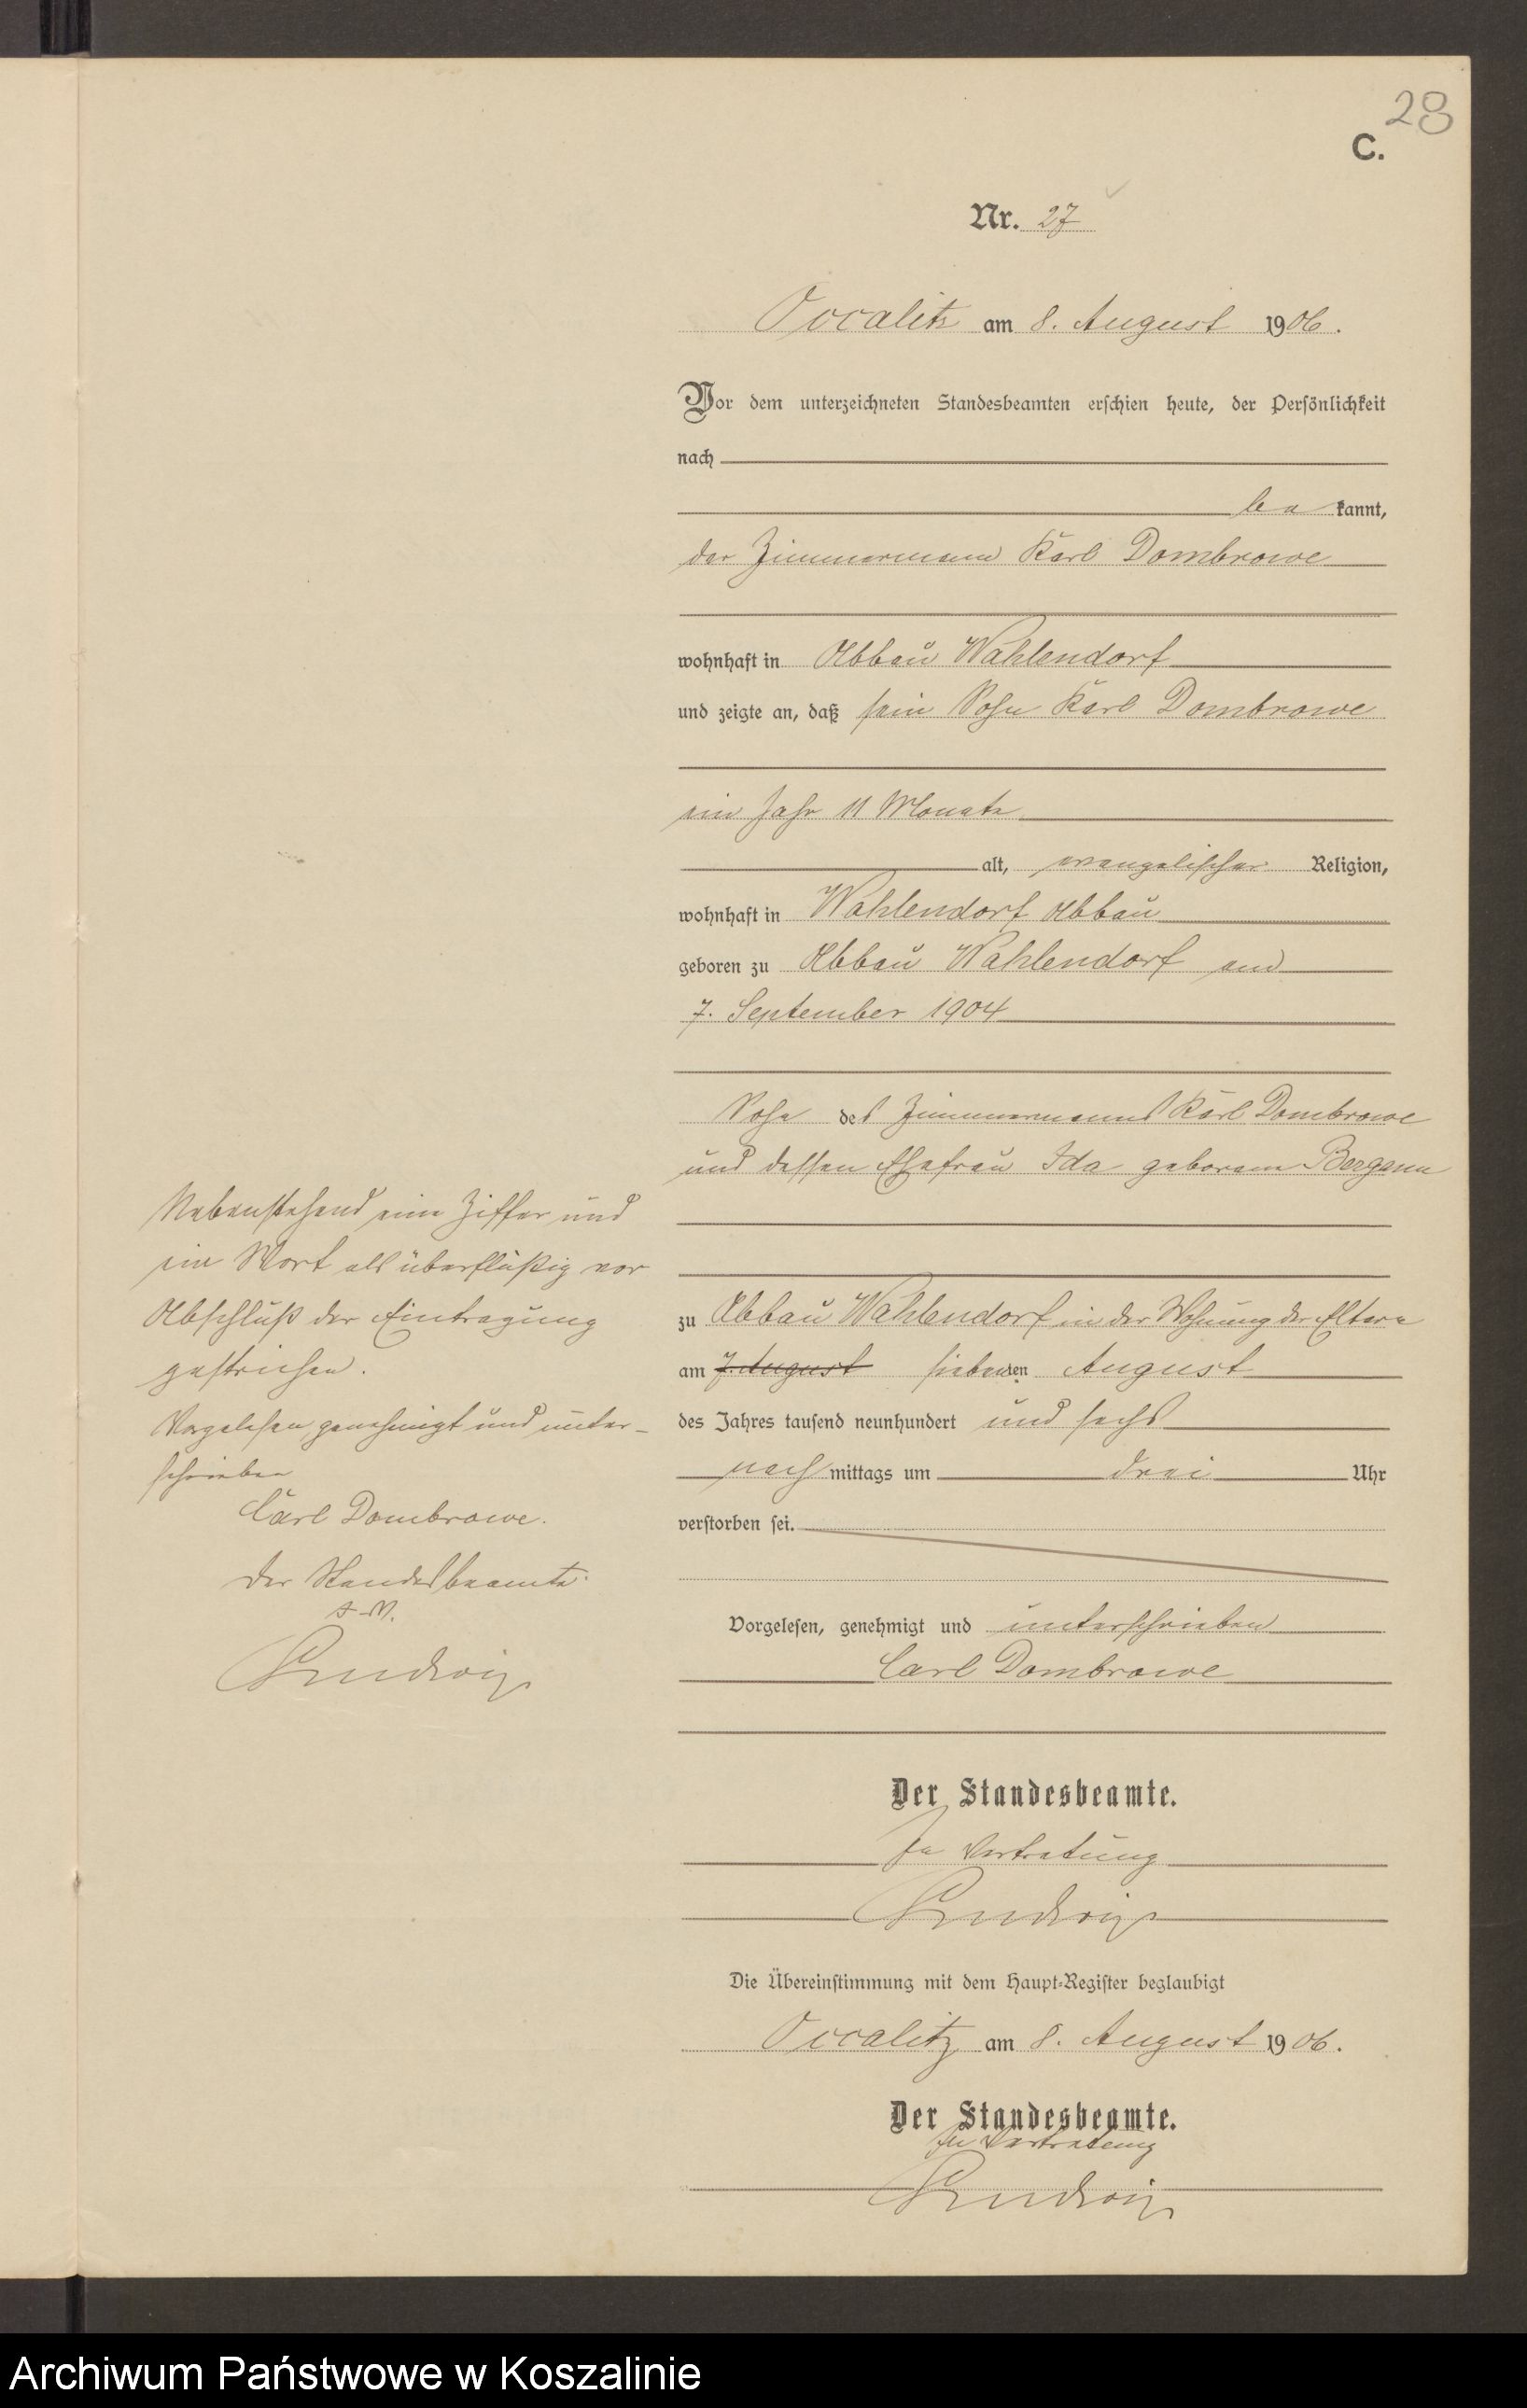 28
C.
Nr. 27
Occalitz am 8. August 1906.
Vor dem unterzeichneten Standesbeamten erschien heute, der Persönlichkeit
nach
be kannt,
der Zimmermann Karl Dombrowe
wohnhaft in Abbau Wahlendorf
und zeigte an, daß sein Sohn Karl Dombrowe
ein Jahr 11 Monate
alt, evangelischer Religion,
wohnhaft in Wahlendorf Abbau
geboren zu Abbau Wahlendorf am
7. September 1904
Sohn des Zimmermanns Karl Dombrowe
und dessen Ehefrau Ida geborene Bergann
zu Abbau Wahlendorf in der Wohnung der Eltern
am 7. August siebenten August
des Jahres tausend neunhundert und sechs
nach mittags um drei Uhr
verstorben sei.
Vorgelesen, genehmigt und unterschrieben
Carl Dombrowe
Der Standesbeamte.
In Vertretung
Die Übereinstimmung mit dem Haupt-Register beglaubigt
Occalitz am 8. August 1906.
Der Standesbeamte.
In Vertretung
Nebenstehend eine Ziffer und
ein Wort als überflüßig vor
Abschluß der Eintragung
gestrichen.
Vorgelesen genehmigt und unter-
schrieben
Carl Dombrowe.
Der Standesbeamte.
Archiwum Państwowe w Koszalinie